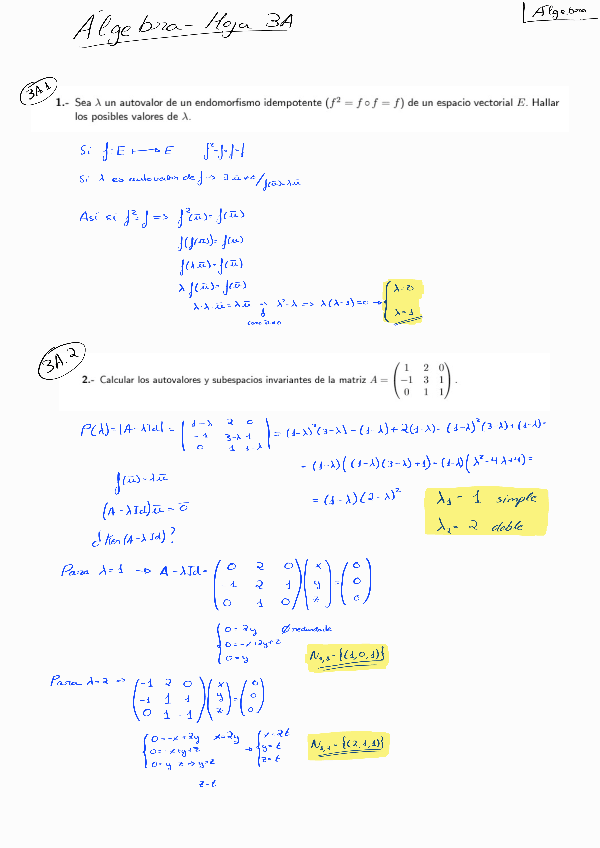 Álgebra - Hoja 3A
Álgebra
3A.1
1.- Sea λ un autovalor de un endomorfismo idempotente (f² = f ∘ f = f) de un espacio vectorial E. Hallar
los posibles valores de λ.
Si f: E → E f² = f∘f = f
Si λ es autovalor de f → ∃ ū / f(ū) = λū
Así si f² = f => f²(ū) = f(ū)
f(f(ū)) = f(ū)
f(λū) = f(ū)
λ f(ū) = f(ū)
λ·λ·ū = λū → λ² = λ => λ(λ-1) = 0 → { λ = 0
λ = 1
3A.2
2.- Calcular los autovalores y subespacios invariantes de la matriz A = ( 1 2 0
-1 3 1
0 1 1 ) .
P(λ) = |A - λId| = | 1-λ 2 0
-1 3-λ 1
0 1 1-λ | = (1-λ)²(3-λ) - (1-λ) + 2(1-λ) = (1-λ)²(3-λ) + (1-λ) =
= (1-λ)((1-λ)(3-λ)+1) = (1-λ)(λ² - 4λ + 4) =
= (1-λ)(2-λ)²
f(ū) = λū
(A - λId)ū = 0̄
¿Ker(A - λId)?
λ₁ = 1 simple
λ₂ = 2 doble
Para λ = 1 → A - λId = ( 0 2 0
1 2 1
0 1 0 ) ( x y z ) = ( 0 0 0 )
{ 0 = 2y
0 = -x + 2y + z
0 = y
= {(1,0,1)}
Para λ = 2 → ( -1 2 0
-1 1 1
0 1 -1 ) ( x y z ) = ( 0 0 0 )
{ 0 = -x + 2y x = 2y
0 = -x + y + z
0 = y z → y = z
→ { x = 2t
y = t
z = t
= {(2,1,1)}
z = t